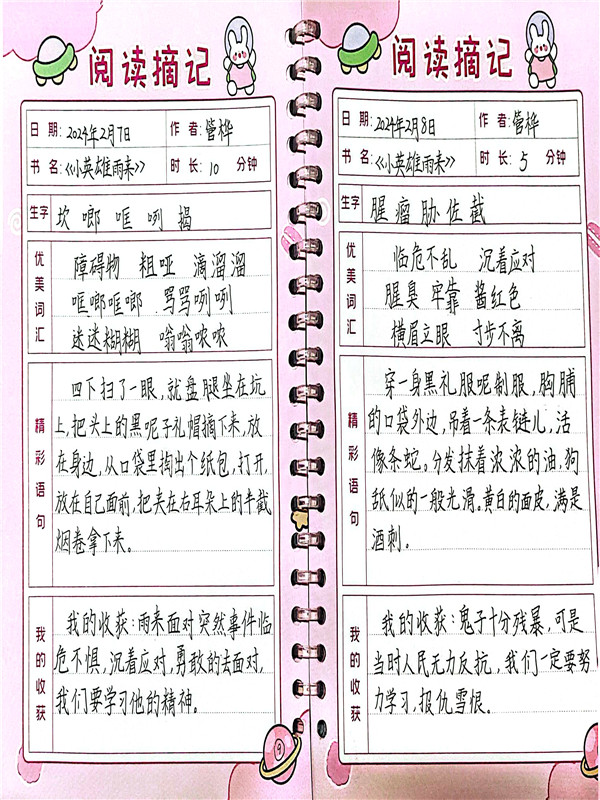 阅读摘记
日期:2024年2月7日 作者:管桦
书名:《小英雄雨来》 时长:10分钟
生字 坎 啷 哐 咧 揭
优美词汇
障碍物 粗哑 滴溜溜
哐啷哐啷 骂骂咧咧
迷迷糊糊 嗡嗡哝哝
精彩语句
四下扫了一眼,就盘腿坐在坑
上,把头上的黑呢子礼帽摘下来,放
在身边,从口袋里掏出个纸包,打开,
放在自己面前,把夹在右耳朵上的半截
烟卷拿下来。
我的收获
我的收获:雨来面对突然事件临
危不惧,沉着应对,勇敢的去面对,
我们要学习他的精神。
9
阅读摘记
日期:2024年2月8日 作者:管桦
书名:《小英雄雨来》 时长:5分钟
生字 腥 瘤 胁 佐 截
优美词汇
临危不乱 沉着应对
腥臭 牢靠 酱红色
横眉立眼 寸步不离
精彩语句
穿一身黑礼服呢制服,胸脯
的口袋外边,吊着一条表链儿,活
像条蛇。分发抹着浓浓的油,狗
舐似的一般光滑。黄白的面皮,满是
酒刺。
我的收获
我的收获:鬼子十分残暴,可是
当时人民无力反抗,我们一定要努
力学习,报仇雪恨。